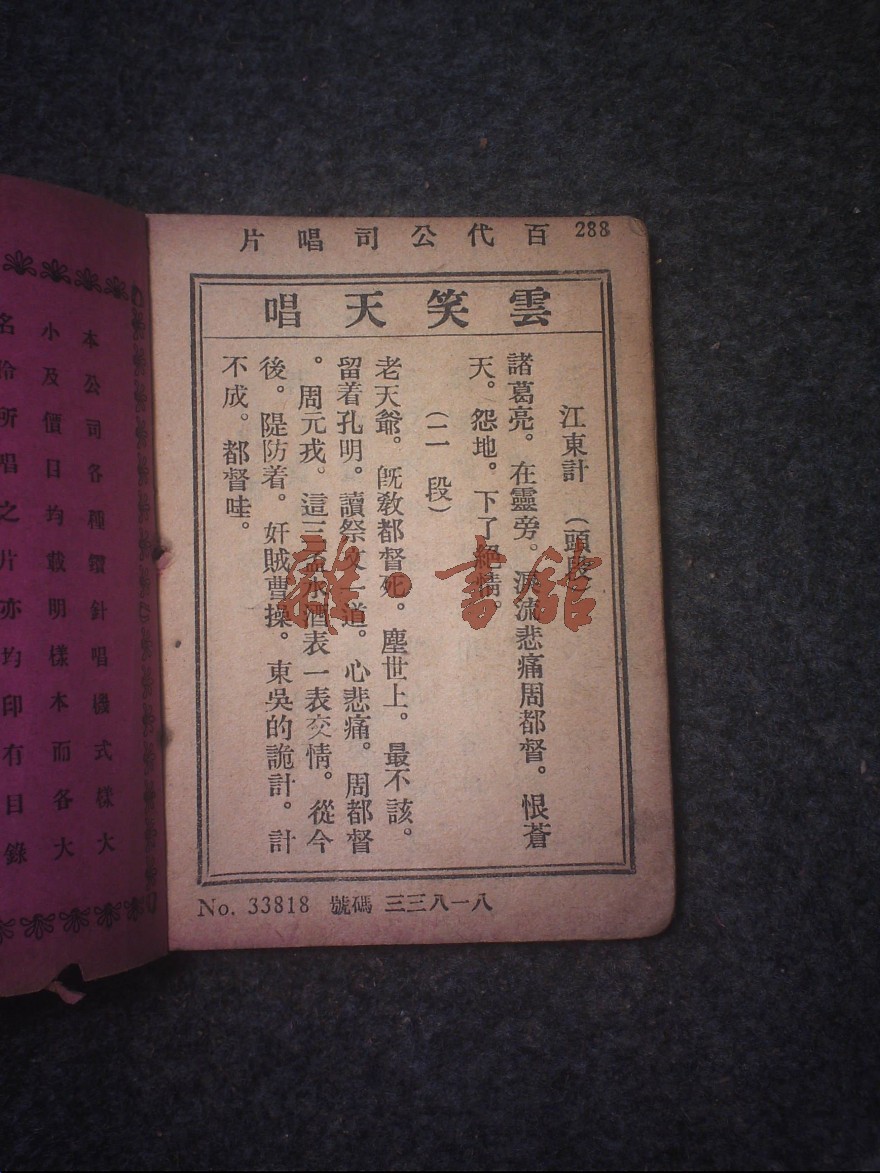 288
百代公司唱片
雲笑天唱
江東計 (頭段)
諸葛亮。在靈旁。淚流悲痛周都督。恨蒼
天。怨地。下了絕情。
(二 段)
老天爺。旣敎都督死。塵世上。最不該。
留着孔明。讀祭文一道。心悲痛。周都督
。周元戎。這三盃水酒表一表交情。從今
後。隄防着。奸賊曹操。東吳的詭計。計
不成。都督哇。
No. 33818 號碼 三三八一八
本公司各種鑽針唱機式樣大
小及價目均載明樣本而各大
名伶所唱之片亦均印有目錄
雜·書館